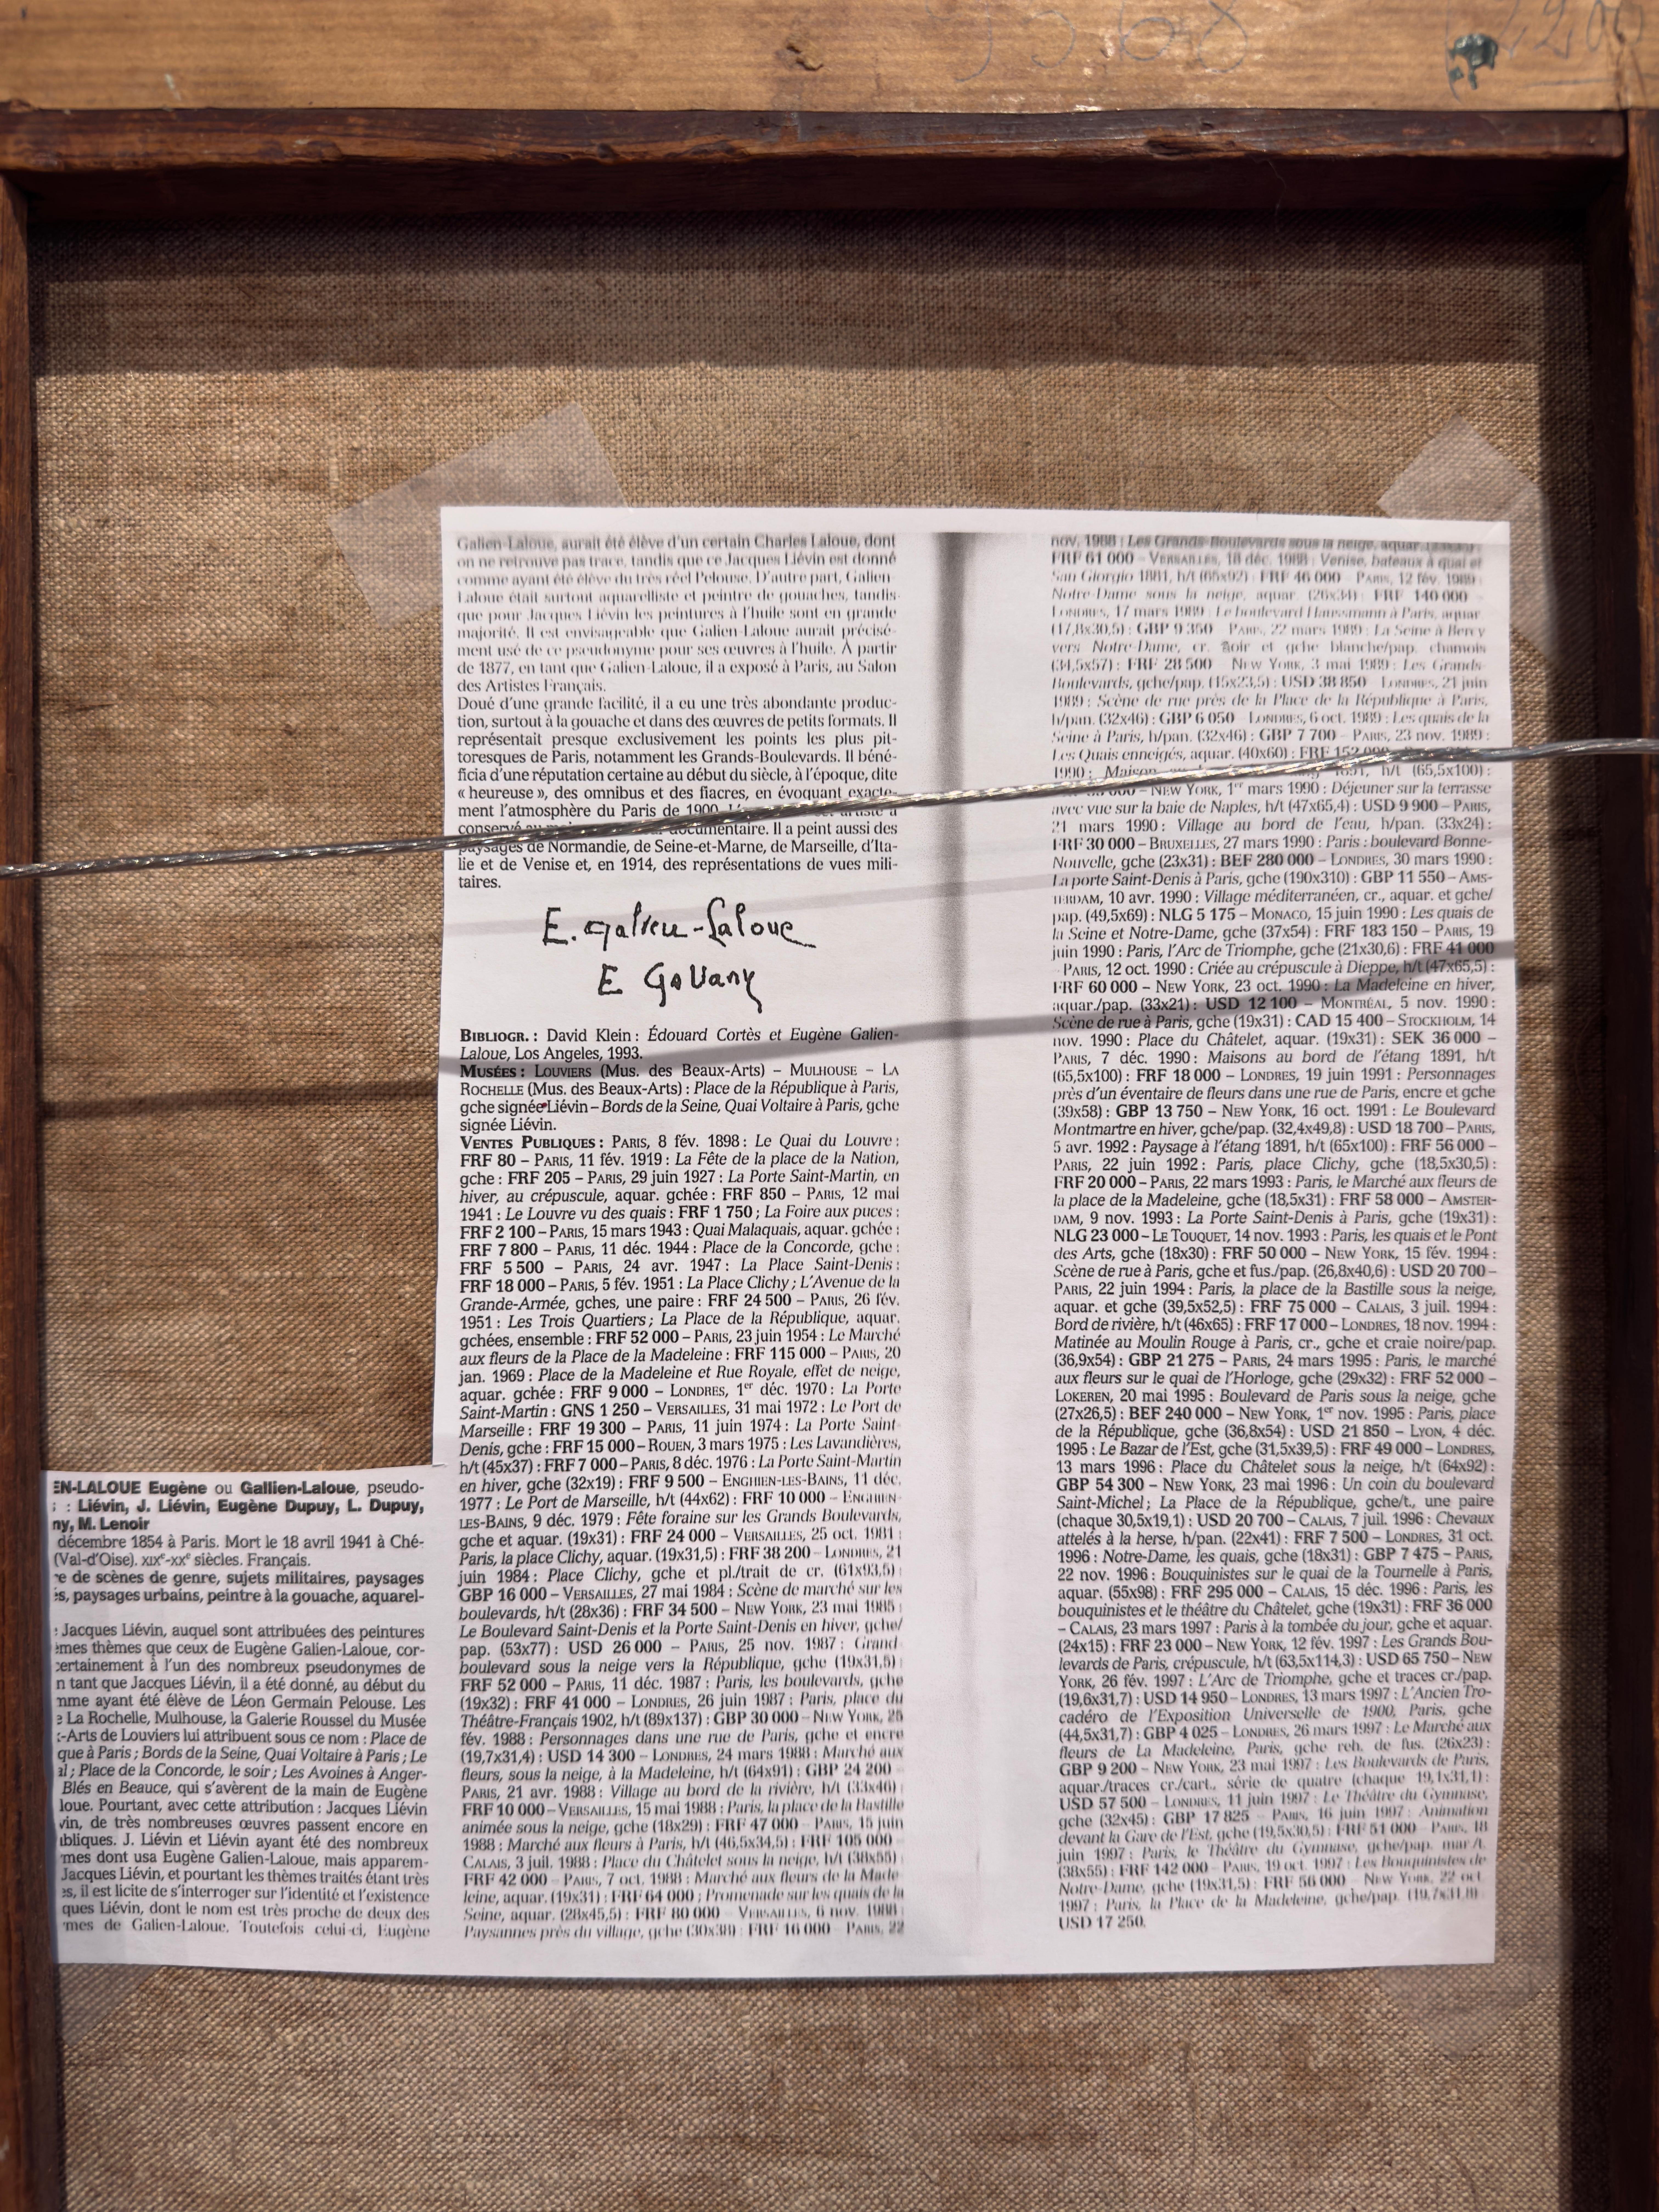 EN-LALOUE Eugène ou Gallien-Laloue, pseudo-
: Liévin, J. Liévin, Eugène Dupuy, L. Dupuy,
ny, M. Lenoir
décembre 1854 à Paris. Mort le 18 avril 1941 à Ché-
(Val-d'Oise). XIXe-XXe siècles. Français.
re de scènes de genre, sujets militaires, paysages
s, paysages urbains, peintre à la gouache, aquarel-
Jacques Liévin, auquel sont attribuées des peintures
mes thèmes que ceux de Eugène Galien-Laloue, cor-
certainement à l'un des nombreux pseudonymes de
n tant que Jacques Liévin, il a été donné, au début du
mme ayant été élève de Léon Germain Pelouse. Les
e La Rochelle, Mulhouse, la Galerie Roussel du Musée
-Arts de Louviers lui attribuent sous ce nom : Place de
que à Paris ; Bords de la Seine, Quai Voltaire à Paris ; Le
al ; Place de la Concorde, le soir ; Les Avoines à Anger-
Blés en Beauce, qui s'avèrent de la main de Eugène
loue. Pourtant, avec cette attribution : Jacques Liévin
vin, de très nombreuses œuvres passent encore en
ubliques. J. Liévin et Liévin ayant été des nombreux
mes dont usa Eugène Galien-Laloue, mais apparem-
Jacques Liévin, et pourtant les thèmes traités étant très
s, il est licite de s'interroger sur l'identité et l'existence
ques Liévin, dont le nom est très proche de deux des
mes de Galien-Laloue. Toutefois celui-ci, Eugène
Galien-Laloue, aurait été élève d'un certain Charles Laloue, dont
on ne retrouve pas trace, tandis que ce Jacques Liévin est donné
comme ayant été élève du très réel Pelouse. D'autre part, Galien-
Laloue était surtout aquarelliste et peintre de gouaches, tandis
que pour Jacques Liévin les peintures à l'huile sont en grande
majorité. Il est envisageable que Galien-Laloue aurait précisé-
ment usé de ce pseudonyme pour ses œuvres à l'huile. À partir
de 1877, en tant que Galien-Laloue, il a exposé à Paris, au Salon
des Artistes Français.
Doué d'une grande facilité, il a eu une très abondante produc-
tion, surtout à la gouache et dans des œuvres de petits formats. Il
représentait presque exclusivement les points les plus pit-
toresques de Paris, notamment les Grands-Boulevards. Il béné-
ficia d'une réputation certaine au début du siècle, à l'époque, dite
« heureuse », des omnibus et des fiacres, en évoquant exacte-
ment l'atmosphère du Paris de 1900. artiste a
conservé au documentaire. Il a peint aussi des
paysages de Normandie, de Seine-et-Marne, de Marseille, d'Ita-
lie et de Venise et, en 1914, des représentations de vues mili-
taires.
E. galien-Laloue
E Galiany
BIBLIOGR. : David Klein : Édouard Cortès et Eugène Galien-
Laloue, Los Angeles, 1993.
MUSÉES : LOUVIERS (Mus. des Beaux-Arts) – MULHOUSE – LA
ROCHELLE (Mus. des Beaux-Arts) : Place de la République à Paris,
gche signée Liévin – Bords de la Seine, Quai Voltaire à Paris, gche
signée Liévin.
VENTES PUBLIQUES : PARIS, 8 fév. 1898 : Le Quai du Louvre :
FRF 80 – PARIS, 11 fév. 1919 : La Fête de la place de la Nation,
gche : FRF 205 – PARIS, 29 juin 1927 : La Porte Saint-Martin, en
hiver, au crépuscule, aquar. gchée : FRF 850 – PARIS, 12 mai
1941 : Le Louvre vu des quais : FRF 1 750 ; La Foire aux puces :
FRF 2 100 – PARIS, 15 mars 1943 : Quai Malaquais, aquar. gchée :
FRF 7 800 – PARIS, 11 déc. 1944 : Place de la Concorde, gche :
FRF 5 500 – PARIS, 24 avr. 1947 : La Place Saint-Denis :
FRF 18 000 – PARIS, 5 fév. 1951 : La Place Clichy ; L'Avenue de la
Grande-Armée, gches, une paire : FRF 24 500 – PARIS, 26 fév.
1951 : Les Trois Quartiers ; La Place de la République, aquar.
gchées, ensemble : FRF 52 000 – PARIS, 23 juin 1954 : Le Marché
aux fleurs de la Place de la Madeleine : FRF 115 000 – PARIS, 20
jan. 1969 : Place de la Madeleine et Rue Royale, effet de neige,
aquar. gchée : FRF 9 000 – LONDRES, 1er déc. 1970 : La Porte
Saint-Martin : GNS 1 250 – VERSAILLES, 31 mai 1972 : Le Port de
Marseille : FRF 19 300 – PARIS, 11 juin 1974 : La Porte Saint-
Denis, gche : FRF 15 000 – ROUEN, 3 mars 1975 : Les Lavandières,
h/t (45x37) : FRF 7 000 – PARIS, 8 déc. 1976 : La Porte Saint-Martin
en hiver, gche (32x19) : FRF 9 500 – ENGHIEN-LES-BAINS, 11 déc.
1977 : Le Port de Marseille, h/t (44x62) : FRF 10 000 – ENGHIEN-
LES-BAINS, 9 déc. 1979 : Fête foraine sur les Grands Boulevards,
gche et aquar. (19x31) : FRF 24 000 – VERSAILLES, 25 oct. 1981 :
Paris, la place Clichy, aquar. (19x31,5) : FRF 38 200 – LONDRES, 21
juin 1984 : Place Clichy, gche et pl./trait de cr. (61x93,5) :
GBP 16 000 – VERSAILLES, 27 mai 1984 : Scène de marché sur les
boulevards, h/t (28x36) : FRF 34 500 – NEW YORK, 23 mai 1985 :
Le Boulevard Saint-Denis et la Porte Saint-Denis en hiver, gche/
pap. (53x77) : USD 26 000 – PARIS, 25 nov. 1987 : Grand
boulevard sous la neige vers la République, gche (19x31,5) :
FRF 52 000 – PARIS, 11 déc. 1987 : Paris, les boulevards, gche
(19x32) : FRF 41 000 – LONDRES, 26 juin 1987 : Paris, place du
Théâtre-Français 1902, h/t (89x137) : GBP 30 000 – NEW YORK, 25
fév. 1988 : Personnages dans une rue de Paris, gche et encre
(19,7x31,4) : USD 14 300 – LONDRES, 24 mars 1988 : Marché aux
fleurs, sous la neige, à la Madeleine, h/t (64x91) : GBP 24 200 –
PARIS, 21 avr. 1988 : Village au bord de la rivière, h/t (33x46) :
FRF 10 000 – VERSAILLES, 15 mai 1988 : Paris, la place de la Bastille
animée sous la neige, gche (18x29) : FRF 47 000 – PARIS, 15 juin
1988 : Marché aux fleurs à Paris, h/t (46,5x34,5) : FRF 105 000 –
CALAIS, 3 juil. 1988 : Place du Châtelet sous la neige, h/t (38x55) :
FRF 42 000 – PARIS, 7 oct. 1988 : Marché aux fleurs de la Made-
leine, aquar. (19x31) : FRF 64 000 ; Promenade sur les quais de la
Seine, aquar. (28x45,5) : FRF 80 000 – VERSAILLES, 6 nov. 1988 :
Paysannes près du village, gche (30x38) : FRF 16 000 – PARIS, 22
nov. 1988 : Les Grands-Boulevards sous la neige, aquar.
FRF 61 000 – VERSAILLES, 18 déc. 1988 : Venise, bateaux à quai et
San Giorgio 1881, h/t (65x92) : FRF 46 000 – PARIS, 12 fév. 1989 :
Notre-Dame sous la neige, aquar. (26x34) : FRF 140 000 –
LONDRES, 17 mars 1989 : Le boulevard Haussmann à Paris, aquar.
(17,8x30,5) : GBP 9 350 – PARIS, 22 mars 1989 : La Seine à Bercy
vers Notre-Dame, cr. noir et gche blanche/pap. chamois
(34,5x57) : FRF 28 500 – NEW YORK, 3 mai 1989 : Les Grands-
Boulevards, gche/pap. (15x23,5) : USD 38 850 – LONDRES, 21 juin
1989 : Scène de rue près de la Place de la République à Paris,
h/pan. (32x46) : GBP 6 050 – LONDRES, 6 oct. 1989 : Les quais de la
Seine à Paris, h/pan. (32x46) : GBP 7 700 – PARIS, 23 nov. 1989 :
Les Quais enneigés, aquar. (40x60) : FRF 152 000
1990 : Maison 1891, h/t (65,5x100) :
– NEW YORK, 1er mars 1990 : Déjeuner sur la terrasse
avec vue sur la baie de Naples, h/t (47x65,4) : USD 9 900 – PARIS,
21 mars 1990 : Village au bord de l'eau, h/pan. (33x24) :
FRF 30 000 – BRUXELLES, 27 mars 1990 : Paris : boulevard Bonne-
Nouvelle, gche (23x31) : BEF 280 000 – LONDRES, 30 mars 1990 :
La porte Saint-Denis à Paris, gche (190x310) : GBP 11 550 – AMS-
TERDAM, 10 avr. 1990 : Village méditerranéen, cr., aquar. et gche/
pap. (49,5x69) : NLG 5 175 – MONACO, 15 juin 1990 : Les quais de
la Seine et Notre-Dame, gche (37x54) : FRF 183 150 – PARIS, 19
juin 1990 : Paris, l'Arc de Triomphe, gche (21x30,6) : FRF 41 000
– PARIS, 12 oct. 1990 : Criée au crépuscule à Dieppe, h/t (47x65,5) :
FRF 60 000 – NEW YORK, 23 oct. 1990 : La Madeleine en hiver,
aquar./pap. (33x21) : USD 12 100 – MONTRÉAL, 5 nov. 1990 :
Scène de rue à Paris, gche (19x31) : CAD 15 400 – STOCKHOLM, 14
nov. 1990 : Place du Châtelet, aquar. (19x31) : SEK 36 000 –
PARIS, 7 déc. 1990 : Maisons au bord de l'étang 1891, h/t
(65,5x100) : FRF 18 000 – LONDRES, 19 juin 1991 : Personnages
près d'un éventaire de fleurs dans une rue de Paris, encre et gche
(39x58) : GBP 13 750 – NEW YORK, 16 oct. 1991 : Le Boulevard
Montmartre en hiver, gche/pap. (32,4x49,8) : USD 18 700 – PARIS,
5 avr. 1992 : Paysage à l'étang 1891, h/t (65x100) : FRF 56 000 –
PARIS, 22 juin 1992 : Paris, place Clichy, gche (18,5x30,5) :
FRF 20 000 – PARIS, 22 mars 1993 : Paris, le Marché aux fleurs de
la place de la Madeleine, gche (18,5x31) : FRF 58 000 – AMSTER-
DAM, 9 nov. 1993 : La Porte Saint-Denis à Paris, gche (19x31) :
NLG 23 000 – LE TOUQUET, 14 nov. 1993 : Paris, les quais et le Pont
des Arts, gche (18x30) : FRF 50 000 – NEW YORK, 15 fév. 1994 :
Scène de rue à Paris, gche et fus./pap. (26,8x40,6) : USD 20 700 –
PARIS, 22 juin 1994 : Paris, la place de la Bastille sous la neige,
aquar. et gche (39,5x52,5) : FRF 75 000 – CALAIS, 3 juil. 1994 :
Bord de rivière, h/t (46x65) : FRF 17 000 – LONDRES, 18 nov. 1994 :
Matinée au Moulin Rouge à Paris, cr., gche et craie noire/pap.
(36,9x54) : GBP 21 275 – PARIS, 24 mars 1995 : Paris, le marché
aux fleurs sur le quai de l'Horloge, gche (29x32) : FRF 52 000 –
LOKEREN, 20 mai 1995 : Boulevard de Paris sous la neige, gche
(27x26,5) : BEF 240 000 – NEW YORK, 1er nov. 1995 : Paris, place
de la République, gche (36,8x54) : USD 21 850 – LYON, 4 déc.
1995 : Le Bazar de l'Est, gche (31,5x39,5) : FRF 49 000 – LONDRES,
13 mars 1996 : Place du Châtelet sous la neige, h/t (64x92) :
GBP 54 300 – NEW YORK, 23 mai 1996 : Un coin du boulevard
Saint-Michel ; La Place de la République, gche/t., une paire
(chaque 30,5x19,1) : USD 20 700 – CALAIS, 7 juil. 1996 : Chevaux
attelés à la herse, h/pan. (22x41) : FRF 7 500 – LONDRES, 31 oct.
1996 : Notre-Dame, les quais, gche (18x31) : GBP 7 475 – PARIS,
22 nov. 1996 : Bouquinistes sur le quai de la Tournelle à Paris,
aquar. (55x98) : FRF 295 000 – CALAIS, 15 déc. 1996 : Paris, les
bouquinistes et le théâtre du Châtelet, gche (19x31) : FRF 36 000
– CALAIS, 23 mars 1997 : Paris à la tombée du jour, gche et aquar.
(24x15) : FRF 23 000 – NEW YORK, 12 fév. 1997 : Les Grands Bou-
levards de Paris, crépuscule, h/t (63,5x114,3) : USD 65 750 – NEW
YORK, 26 fév. 1997 : L'Arc de Triomphe, gche et traces cr./pap.
(19,6x31,7) : USD 14 950 – LONDRES, 13 mars 1997 : L'Ancien Tro-
cadéro de l'Exposition Universelle de 1900, Paris, gche
(44,5x31,7) : GBP 4 025 – LONDRES, 26 mars 1997 : Le Marché aux
fleurs de La Madeleine, Paris, gche reh. de fus. (26x23) :
GBP 9 200 – NEW YORK, 23 mai 1997 : Les Boulevards de Paris,
aquar./traces cr./cart., série de quatre (chaque 19,1x31,1) :
USD 57 500 – LONDRES, 11 juin 1997 : Le Théâtre du Gymnase,
gche (32x45) : GBP 17 825 – PARIS, 16 juin 1997 : Animation
devant la Gare de l'Est, gche (19,5x30,5) : FRF 51 000 – PARIS, 18
juin 1997 : Paris, le Théâtre du Gymnase, gche/pap. mar./t.
(38x55) : FRF 142 000 – PARIS, 19 oct. 1997 : Les Bouquinistes de
Notre-Dame, gche (19x31,5) : FRF 56 000 – NEW YORK, 22 oct.
1997 : Paris, la Place de la Madeleine, gche/pap. (19,7x31,8) :
USD 17 250.